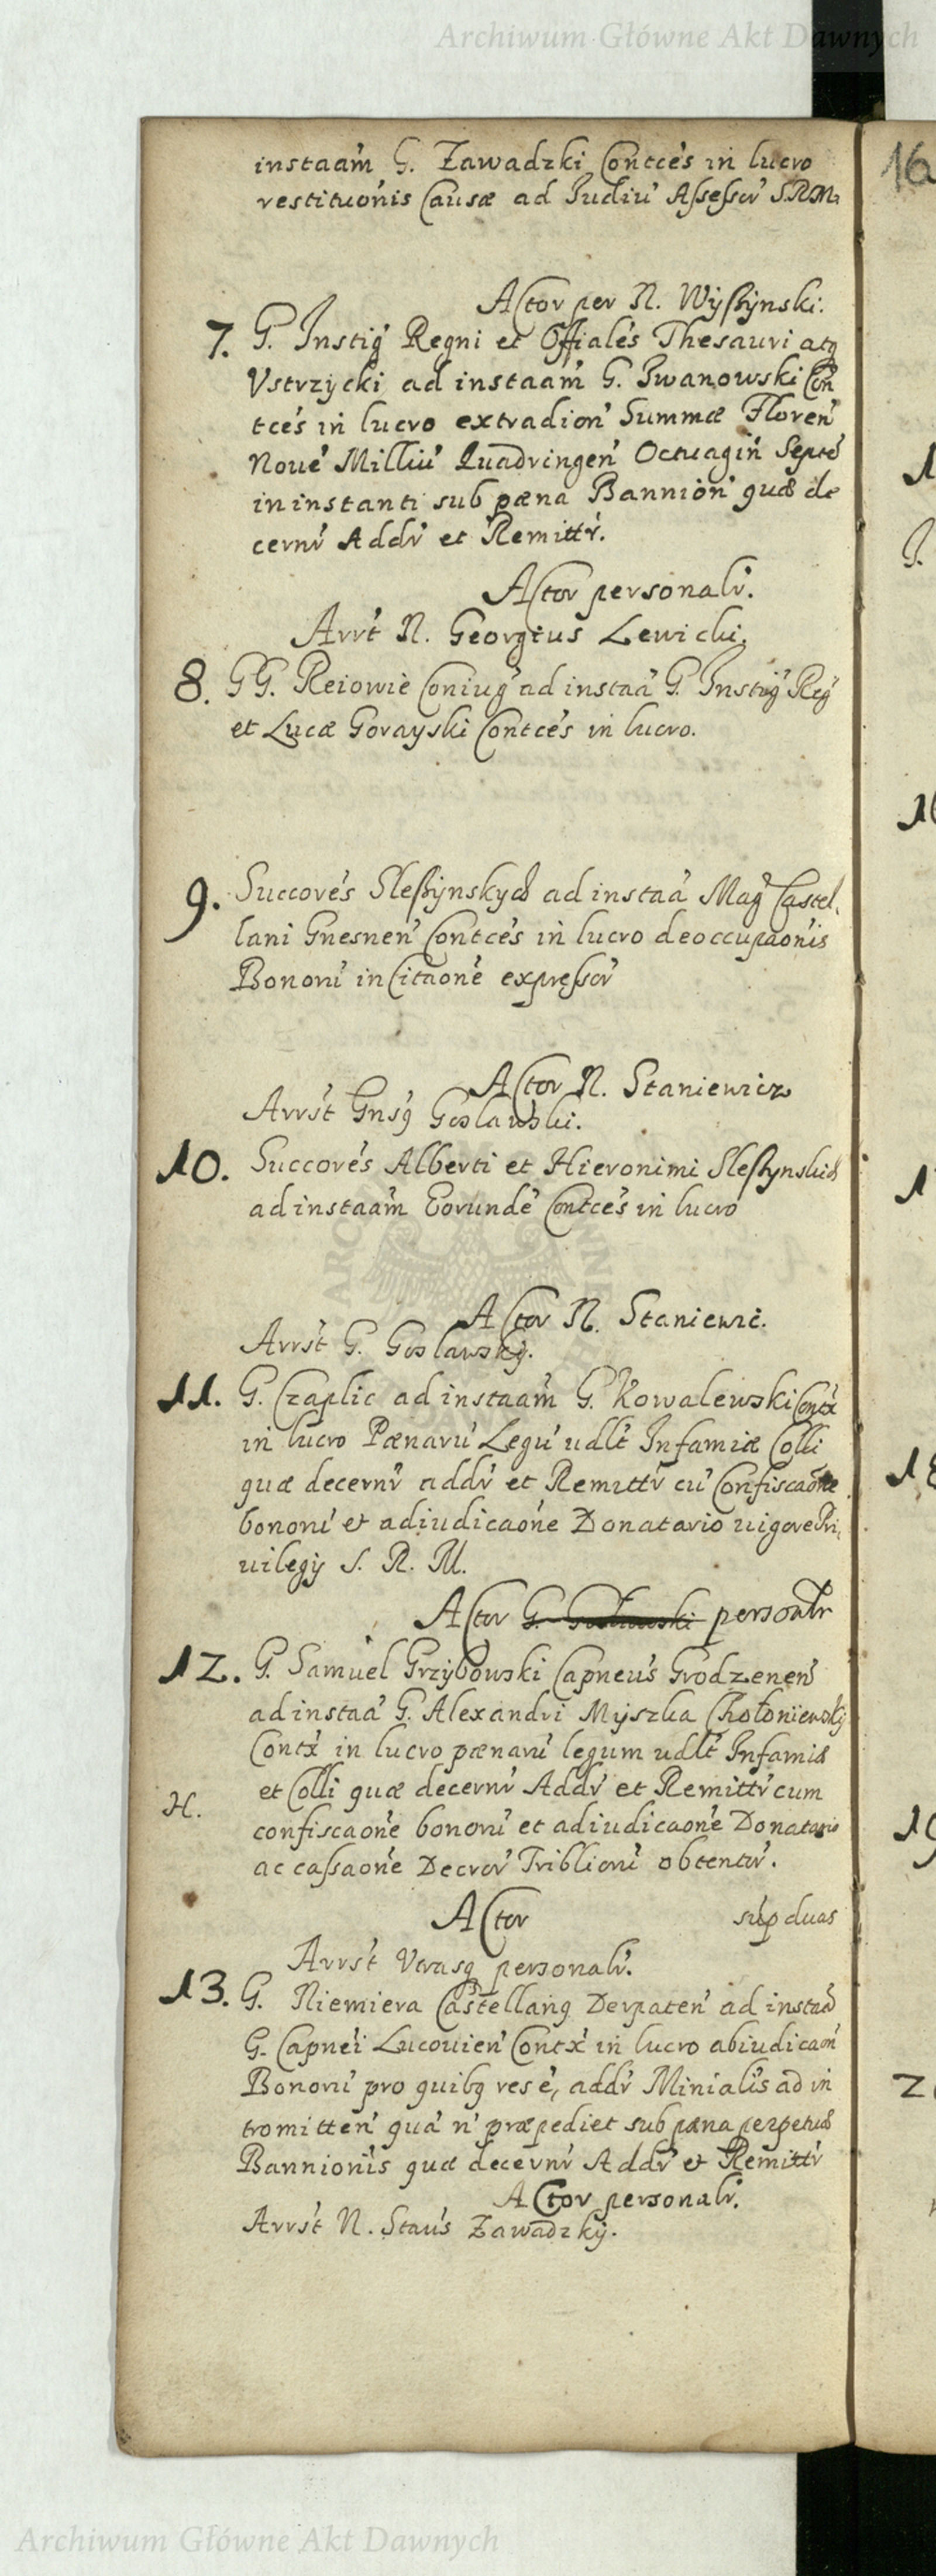 Archiwum Główne Akt Dawnych
instaam̃ G. Zawadzki Contces in lucro
restituõnis Causæ ad Judiu' Assessor' S.R.M.
16
Actor per N. Wyssynski.
7. G. Instig' Regni et Offiales Thesauri atq
Vstrzycki ad instaam̃ G. Iwanowski Con
tces in lucro extradion' Summæ Floren'
Noue' Milliu' Quadringen' Octuagin' Septe'
in instanti sub pæna Bannion' quæ de
cernr' Addr' et Remittr'.
Actor personalr'.
Arrt' N. Georgius Lewicki.
8. GG. Reiowie Coniug' ad instaa' G. Instig' Reg'
et Lucæ Gorayski Contces in lucro.
9. Succores Slessynskych ad instaa' Mag' Castel,
lani Gnesnen' Contces in lucro deoccupaonis
Bonoru' in Citaone' expressor'
Actor N. Staniewicz
Arrst' Gnsq Goslawski.
10. Succores Alberti et Hieronimi Slessynskich
ad instaam̃ Eorunde' Contces in lucro
Actor N. Staniewic'.
Arrst' G. Goslawsky.
11. G. Czaplic ad instaam̃ G. Kowalewski Contx'
in lucro Pænaru' Legu' udlt' Infamiæ Colli
quæ decernr' addr' et Remittr' cu' Confiscaone
bonoru' et adiudicaone Donatario uigore Pri,
uilegij S. R. M.
Actor personalr
12. G. Samuel Grzybowski Capneus Grodzenen'
ad instaa' G. Alexandri Myszka Chołoniewsky
Contx' in lucro pænaru' legum udlt' Infamiæ
et Colli quæ decernr' Addr' et Remittr' cum
H.
confiscaone' bonoru' et adiudicaone' Donatario
ac cassaone' Decror' Triblioru' obtentor'.
Actor sup' duas
Arrst' Vtrasq personalr'.
13. G. Niemiera Castellanq Derpaten' ad instaa'
G. Capnei Lucouien' Contx' in lucro abiudicaon'
Bonoru' pro quibq res e', addr' Minialis ad in
tromitten' qua' n' præpediet sub pæna perpetuæ
Bannionis quæ decernr' Addr' et Remittr'
Actor personalr'.
Arrst' N. Staus' Zawadzky.
Archiwum Główne Akt Dawnych